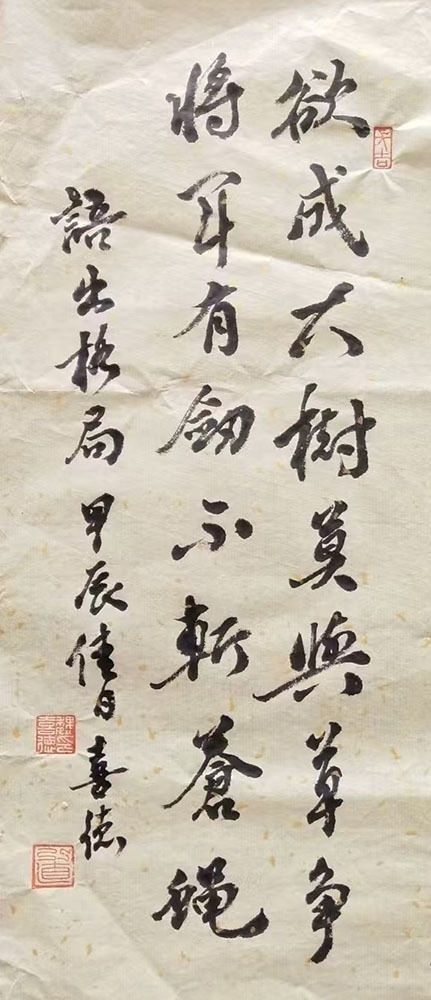 欲成大樹莫與草争
將军有劒不斬蒼蝇
語出格局甲辰佳日喜德